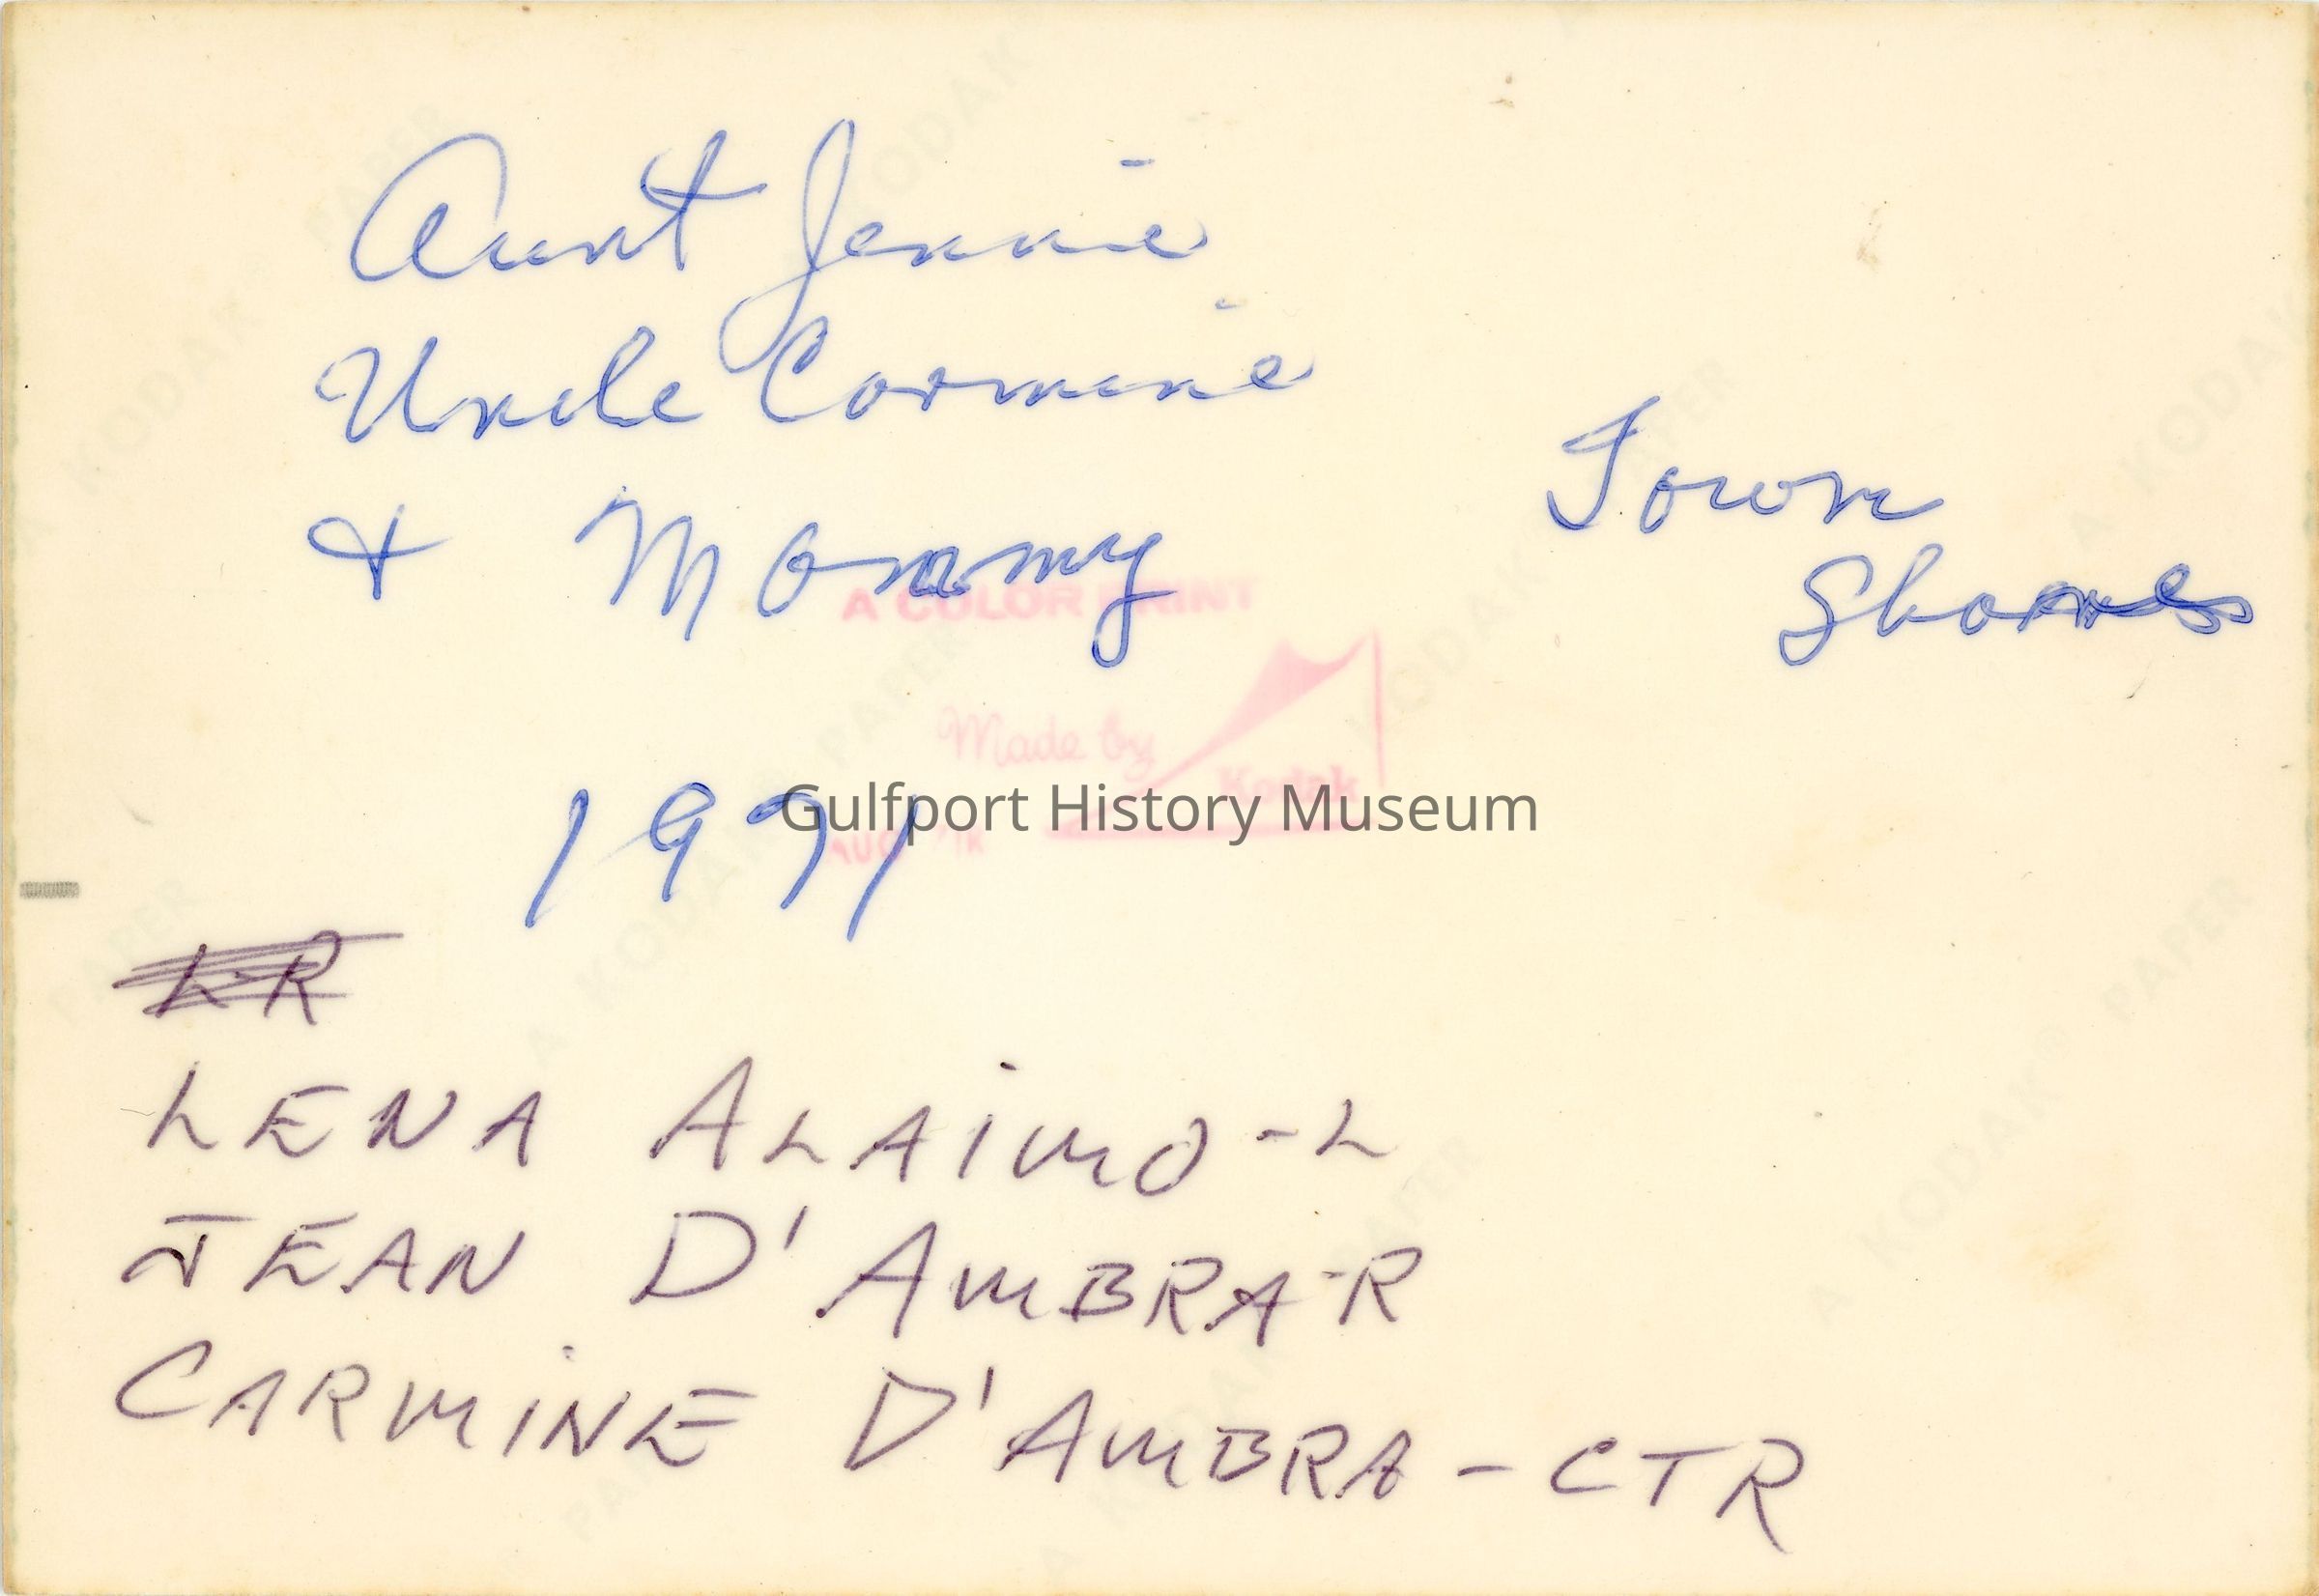 Aunt Jennie
Uncle Carmine
& Mommy
Town
Shores
A COLOR PRINT
Made by
Kodak
1971
Gulfport History Museum
AUG
LR
LENA ALAIMO - L
JEAN D'AMBRA - R
CARMINE D'AMBRA - CTR
A KODAK PAPER